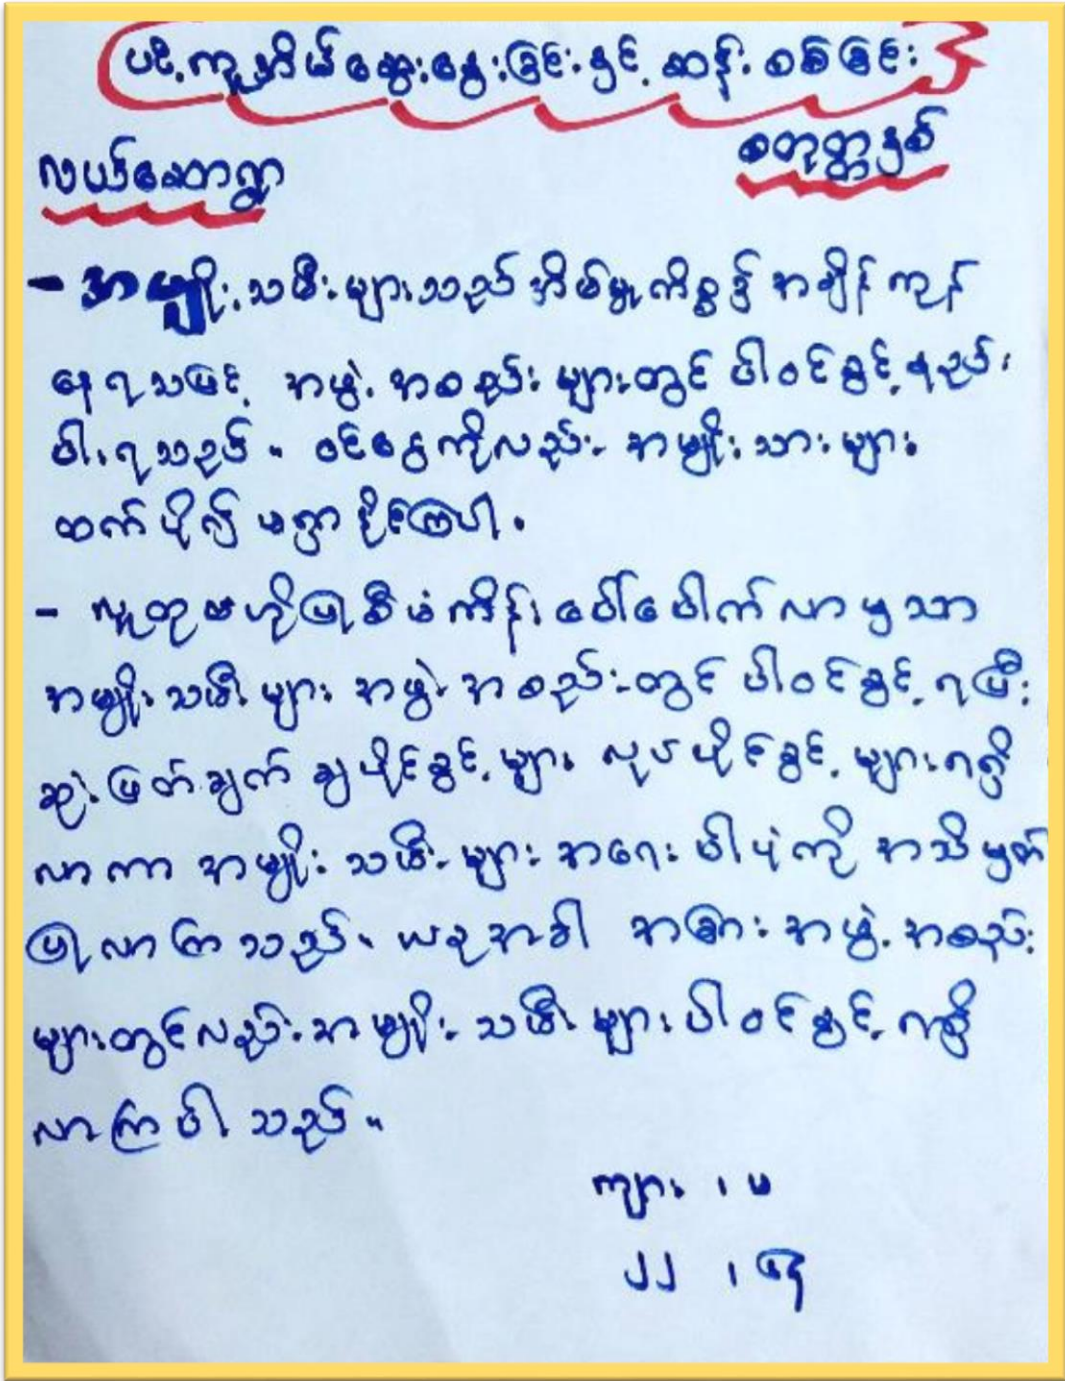 ပင့်ကူအိမ်ဆွေးနွေးခြင်းနှင့် ဆန်းစစ်ခြင်း
လယ်တောရွာ စတုတ္ထနှစ်
- အမျိုးသမီးများသည် အိမ်မှုကိစ္စဖြင့် အချိန်ကုန်
နေရသဖြင့် အဖွဲ့အစည်းများတွင် ပါဝင်ခွင့်နည်း
ပါးရသည်။ ဝင်ငွေကိုလည်း အမျိုးသားများ
ထက်ပို၍ မရှာနိုင်ကြပေ။
- လူထုဗဟိုပြုစီမံကိန်း ပေါ်ပေါက်လာမှသာ
အမျိုးသမီးများ အဖွဲ့အစည်းတွင် ပါဝင်ခွင့်ရပြီး
ဆုံးဖြတ်ချက်ချပိုင်ခွင့်များ လုပ်ပိုင်ခွင့်များရရှိ
လာကာ အမျိုးသမီးများ အရေးပါပုံကို အသိမှတ်
ပြုလာကြသည်။ ယခုအခါ အခြားအဖွဲ့အစည်း
များတွင်လည်း အမျိုးသမီးများ ပါဝင်ခွင့်ရရှိ
လာကြပါသည်။
ကျား ၊ မ
၂၂ ၊ ၉၅